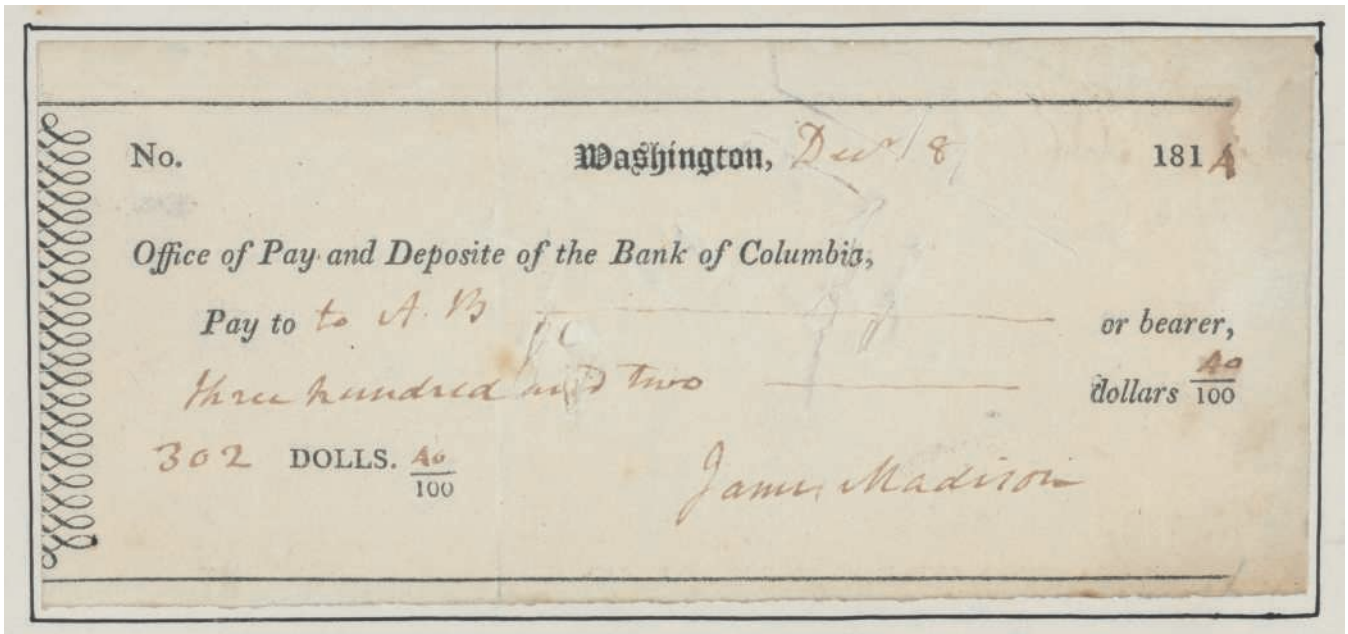 No. Washington, Decr 8, 1814
Office of Pay and Deposite of the Bank of Columbia,
Pay to to A. B or bearer,
three hundred and two dollars 40/100
302 DOLLS. 40/100
James Madison